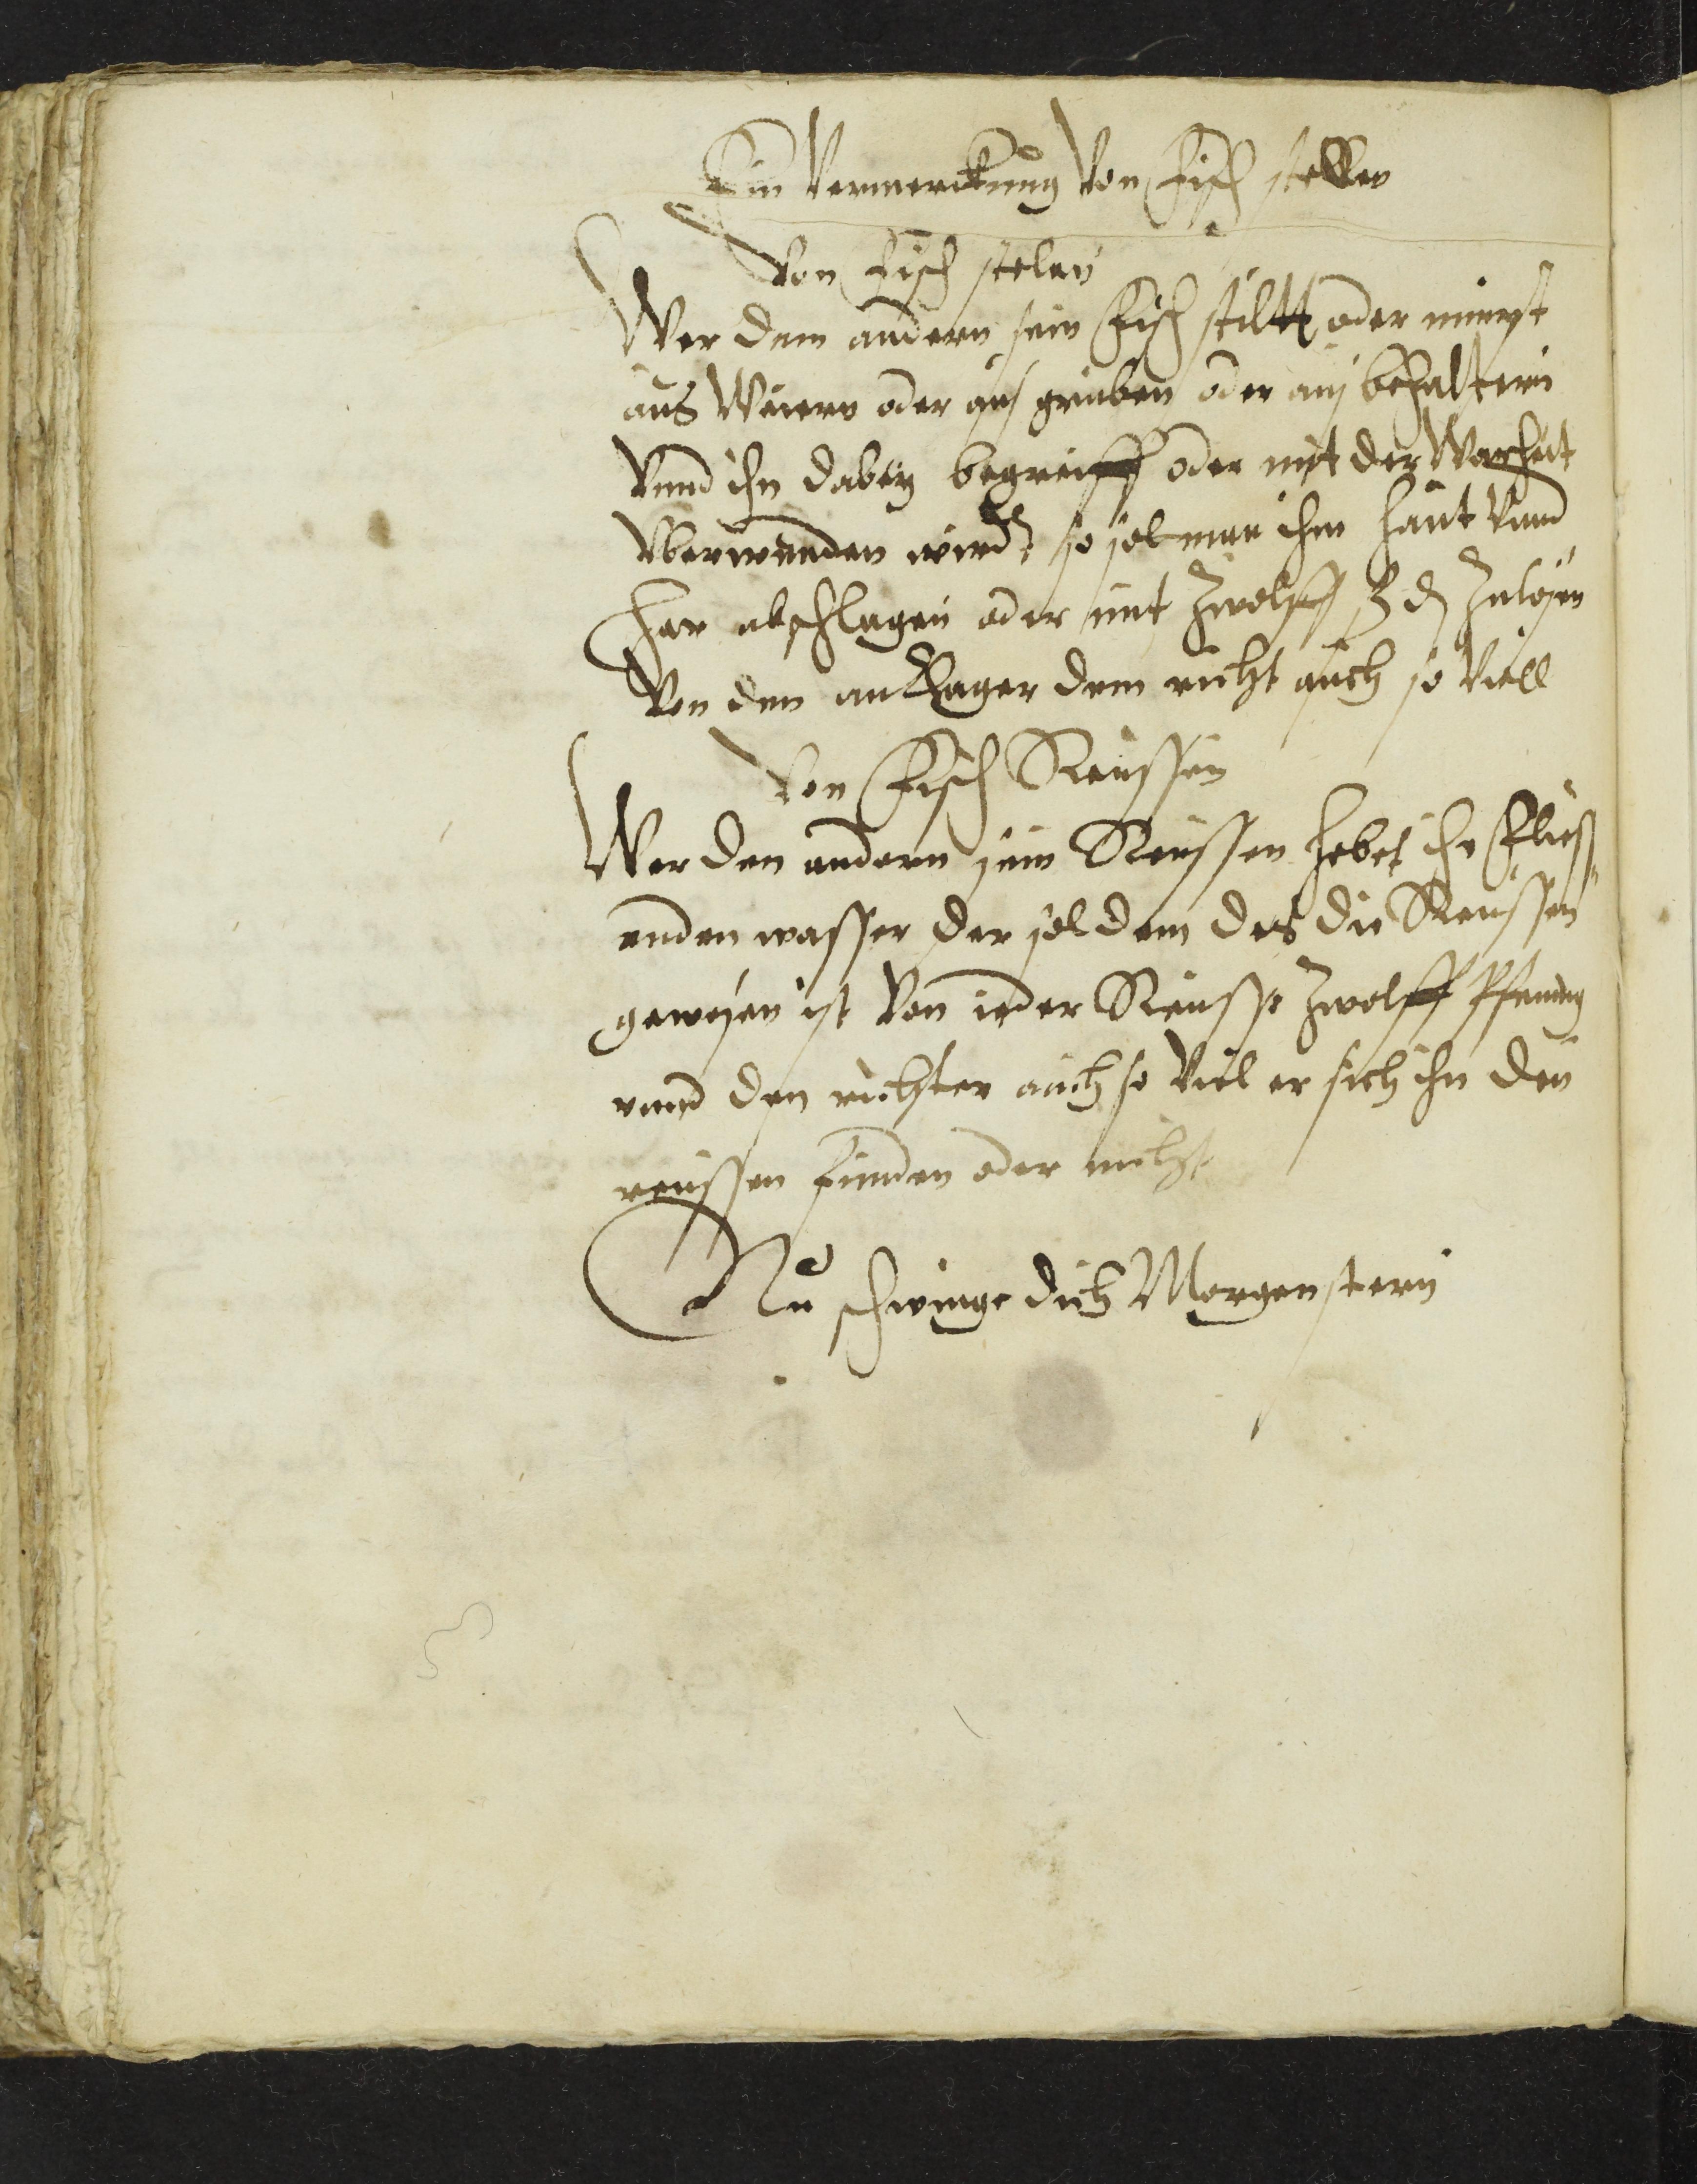 Ein Vermerckung von Fisch stellen
Von Fisch stelen
Wer dem andern sein Fisch stiltt oder nimpt
aus Weiern oder aus gruben oder aus behaltern
Vnnd ihn dabey begreifft oder mit der Warheit
Vberwunden wird so sol man ihm Haut Vnnd
Har abschlagen oder mit Zwolff ß d Zulosen
Von dem anklager dem richt auch so Viell
Von Fisch Reussen
Wer den andern sein Reussen hebet ihn Fliess„
enden wasser der sol dem des die Reussen
gewesen ist Von ieder Reusse Zwolff Pfennig
vnnd den richter auch so Viel er sich ihn den
reussen finden oder nicht
Nu schwinge dich Morgenstern